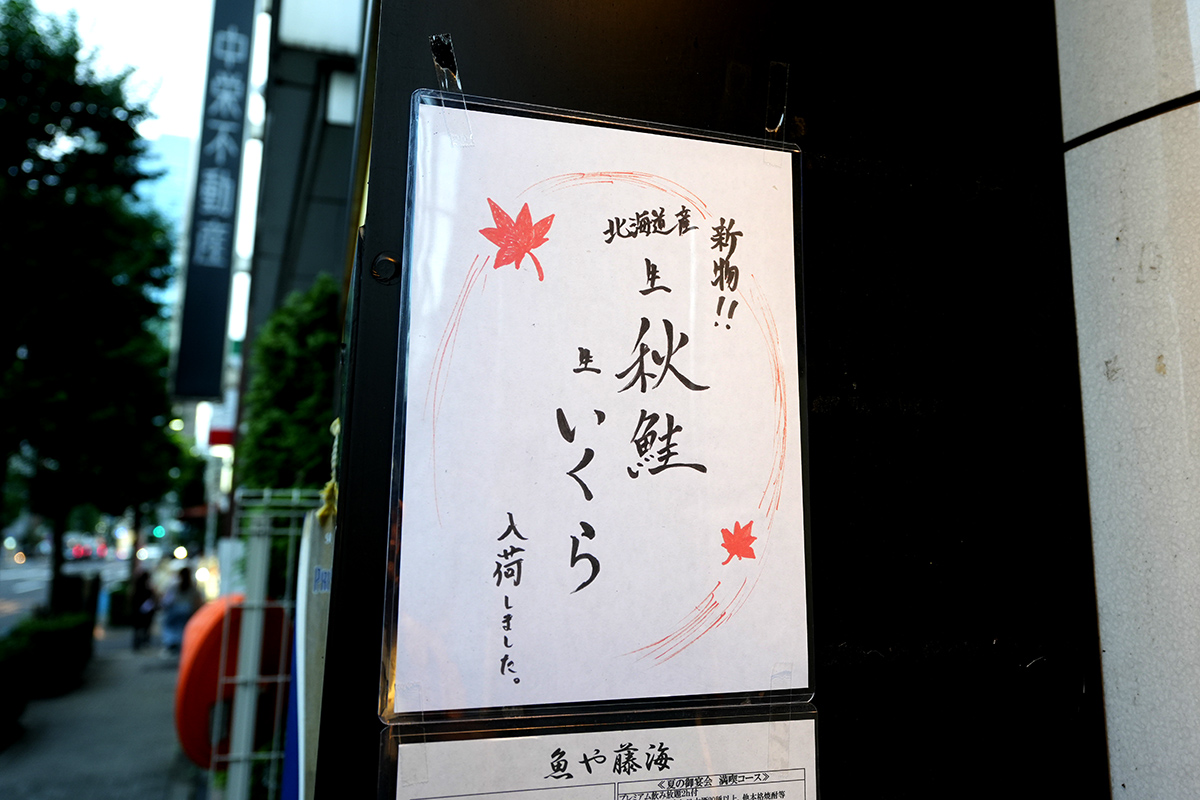 中栄不動産
新物!!
北海道産
生 秋鮭
生 いくら
入荷しました。
魚や藤海
≪夏の御宴会 満喫コース≫
プレミアム飲み放題2h付